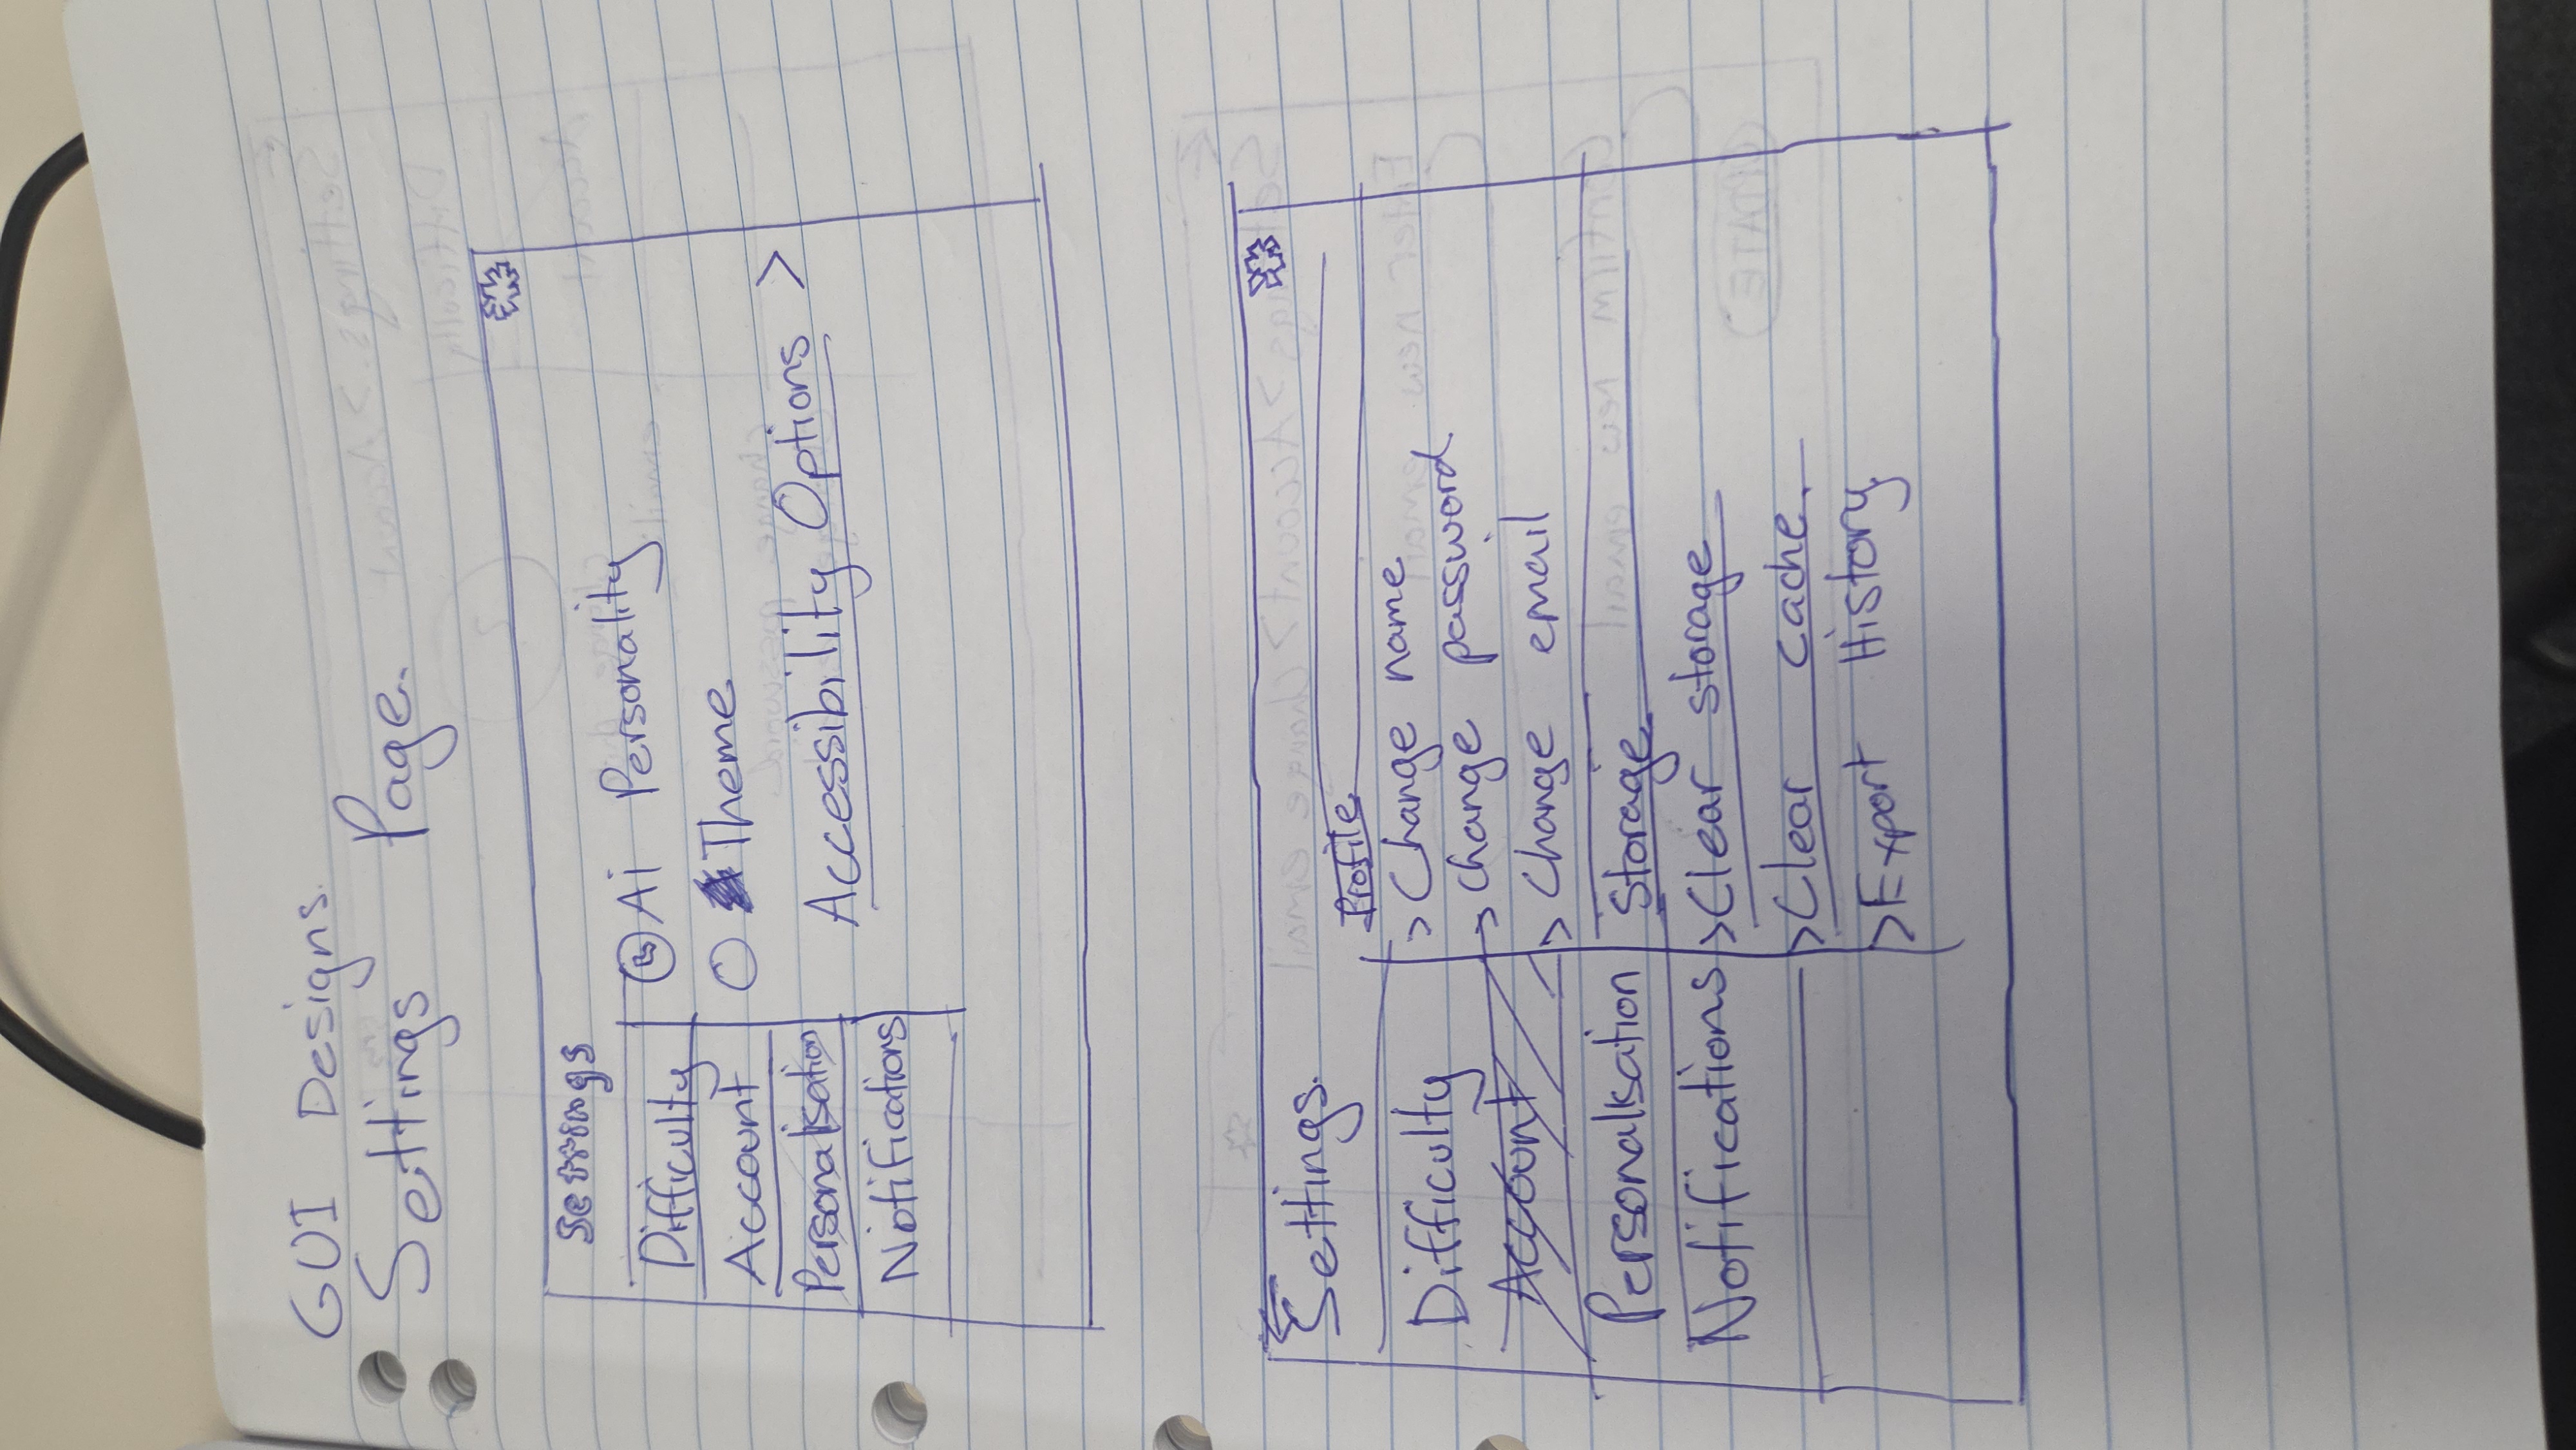 GUI Designs.
Settings Page.
Settings
Difficulty
Account
Personalisation
Notifications
Ai Personality
Theme
Accessibility Options >
Settings.
Difficulty
Account
Personalisation
Notifications
Profile
> Change name
> Change password
> Change email
Storage
> Clear storage
> Clear cache.
> Export History